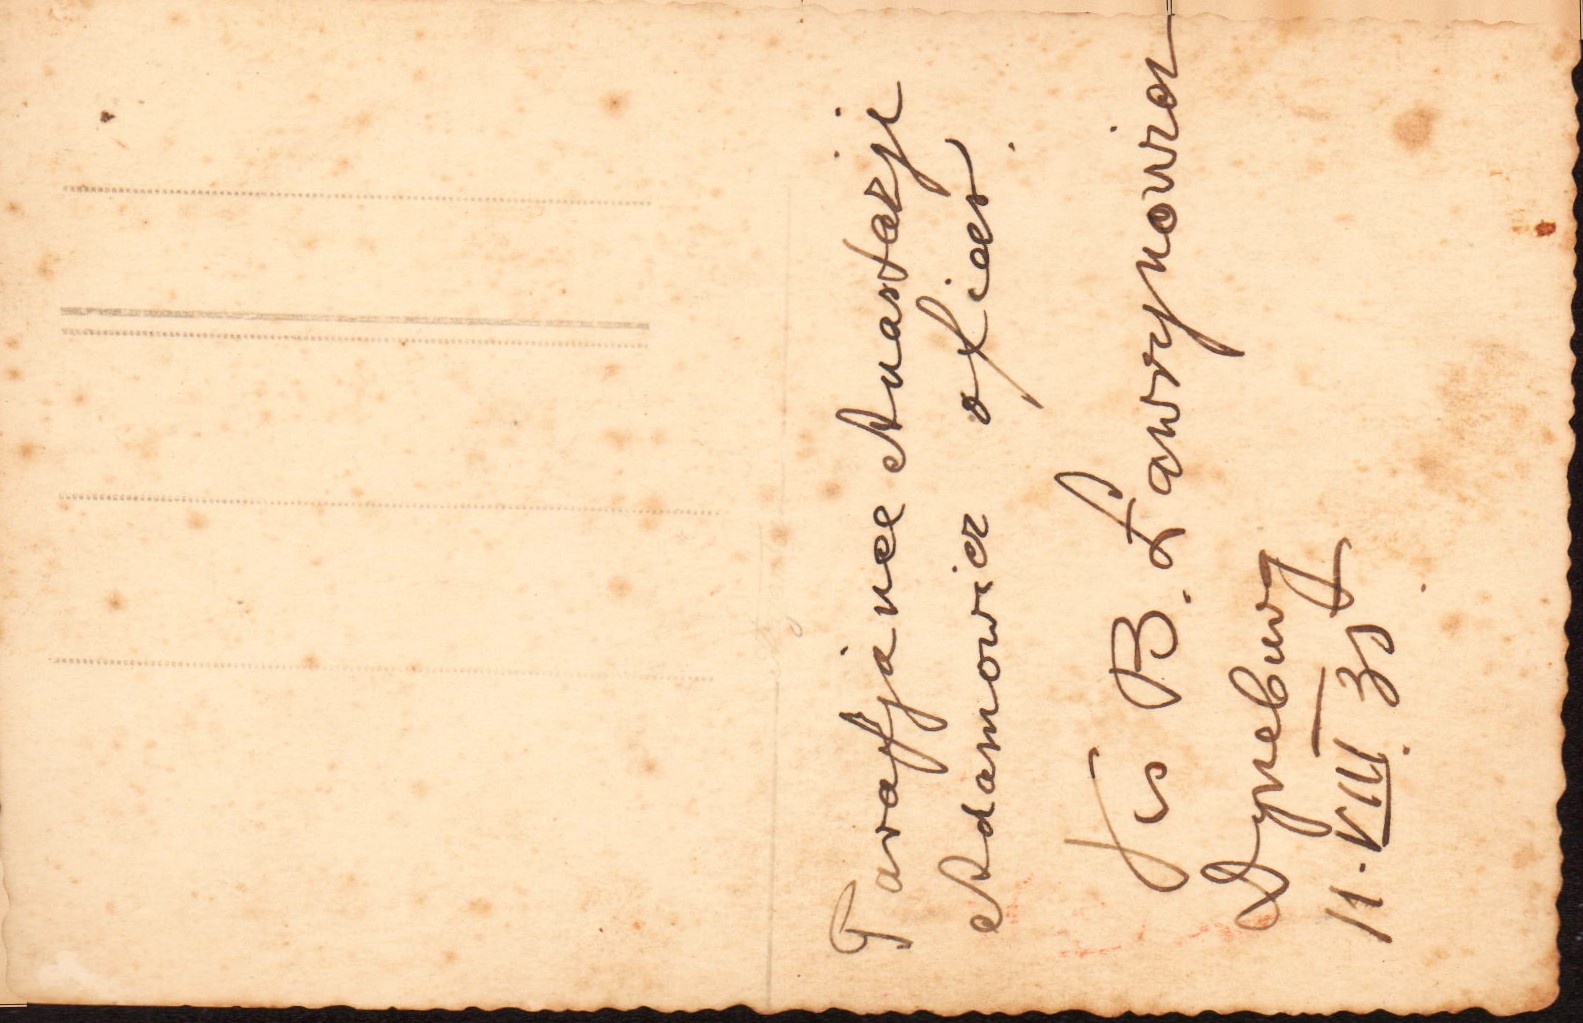 Parafjance Anastazji
Adamowicz ofiar.
Ks B. Ławrynowicz
Dyneburg
11.VIII 35